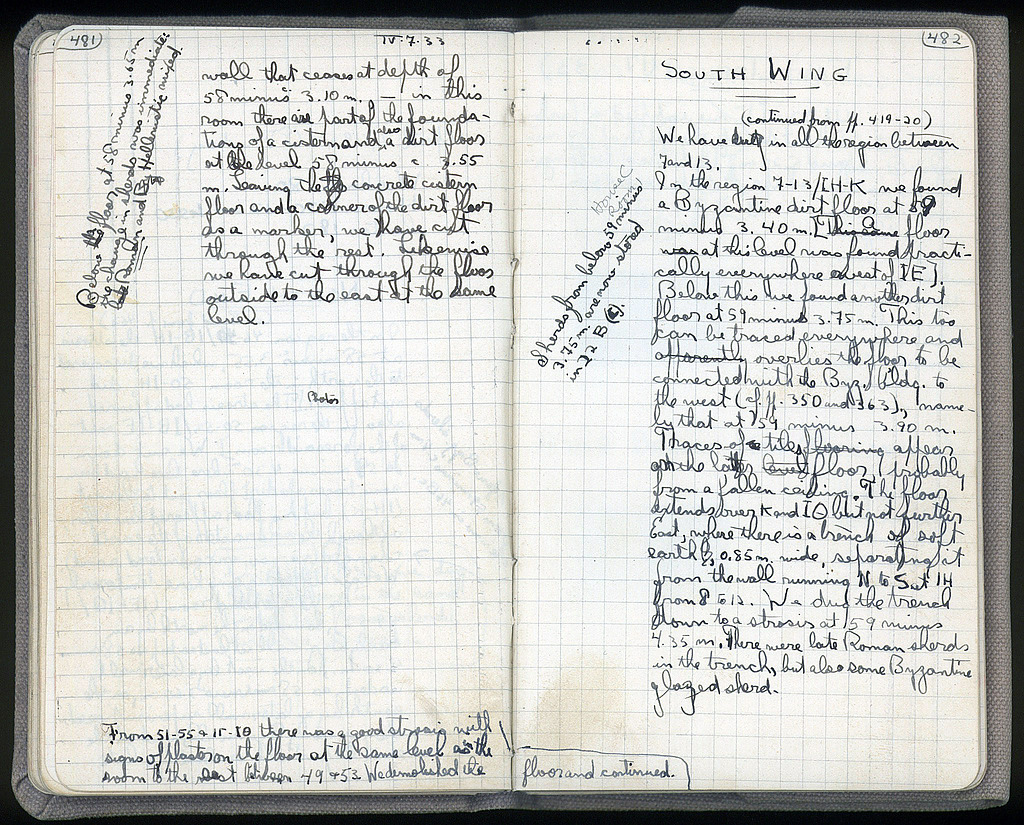 481
IV.7.33
Below the floor at 58 minus 3.65 m
the change in sherds was immediate:
late Roman and By. Hellenistic mixed.
wall that ceases at depth of
58 minus 3.10 m. — in this
room there are part of the founda-
tion of a cistern and, also a dirt floor
at the level 58 minus c 3.55
m. Leaving the concrete cistern
floor and a corner of the dirt floor
as a marker, we have cut
through the rest. Likewise
we have cut through the floor
outside to the east at the same
level.
Photos
From 51-55 + there was a good strosis with
signs of plaster on the floor at the same level as the
room to the west between 49 + 53. We demolished the
floor and continued.
482
SOUTH WING
(continued from pp. 419-20)
We have dug in all the region between
7 and 13.
In the region 7-13/IH-K we found
a Byzantine dirt floor at 59
minus 3.40 m. [This same floor
was at this level was found practi-
cally everywhere west of IE].
Below this we found another dirt
floor at 59 minus 3.75 m. This too
can be traced everywhere and
apparently overlies the floor to be
connected with the Byz. bldg. to
the west (cf. pp. 350 and 363), name-
ly that at 59 minus 3.90 m.
Traces of tile flooring appear
on the latter level floor, probably
from a fallen ceiling. The floor
extends over K and IΘ but not further
East, where there is a trench of soft
earth c. 0.85 m. wide, separating it
from the wall running N to S at IH
from 8 to 12. We dug the trench
down to a strosis at 59 minus
4.35 m. There were late Roman sherds
in the trench, but also some Byzantine
glazed sherd.
House C
Sherds from below 59 minus
3.75 m. are now stored
in 22 B (C).